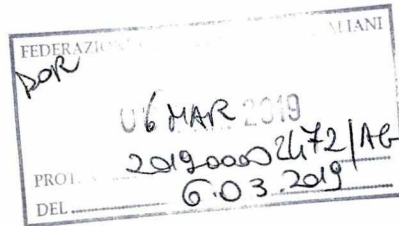 FEDERAZIO ALIANI
DOR
06 MAR 2019
PROT. 20190002472/AG
DEL 6.03.2019